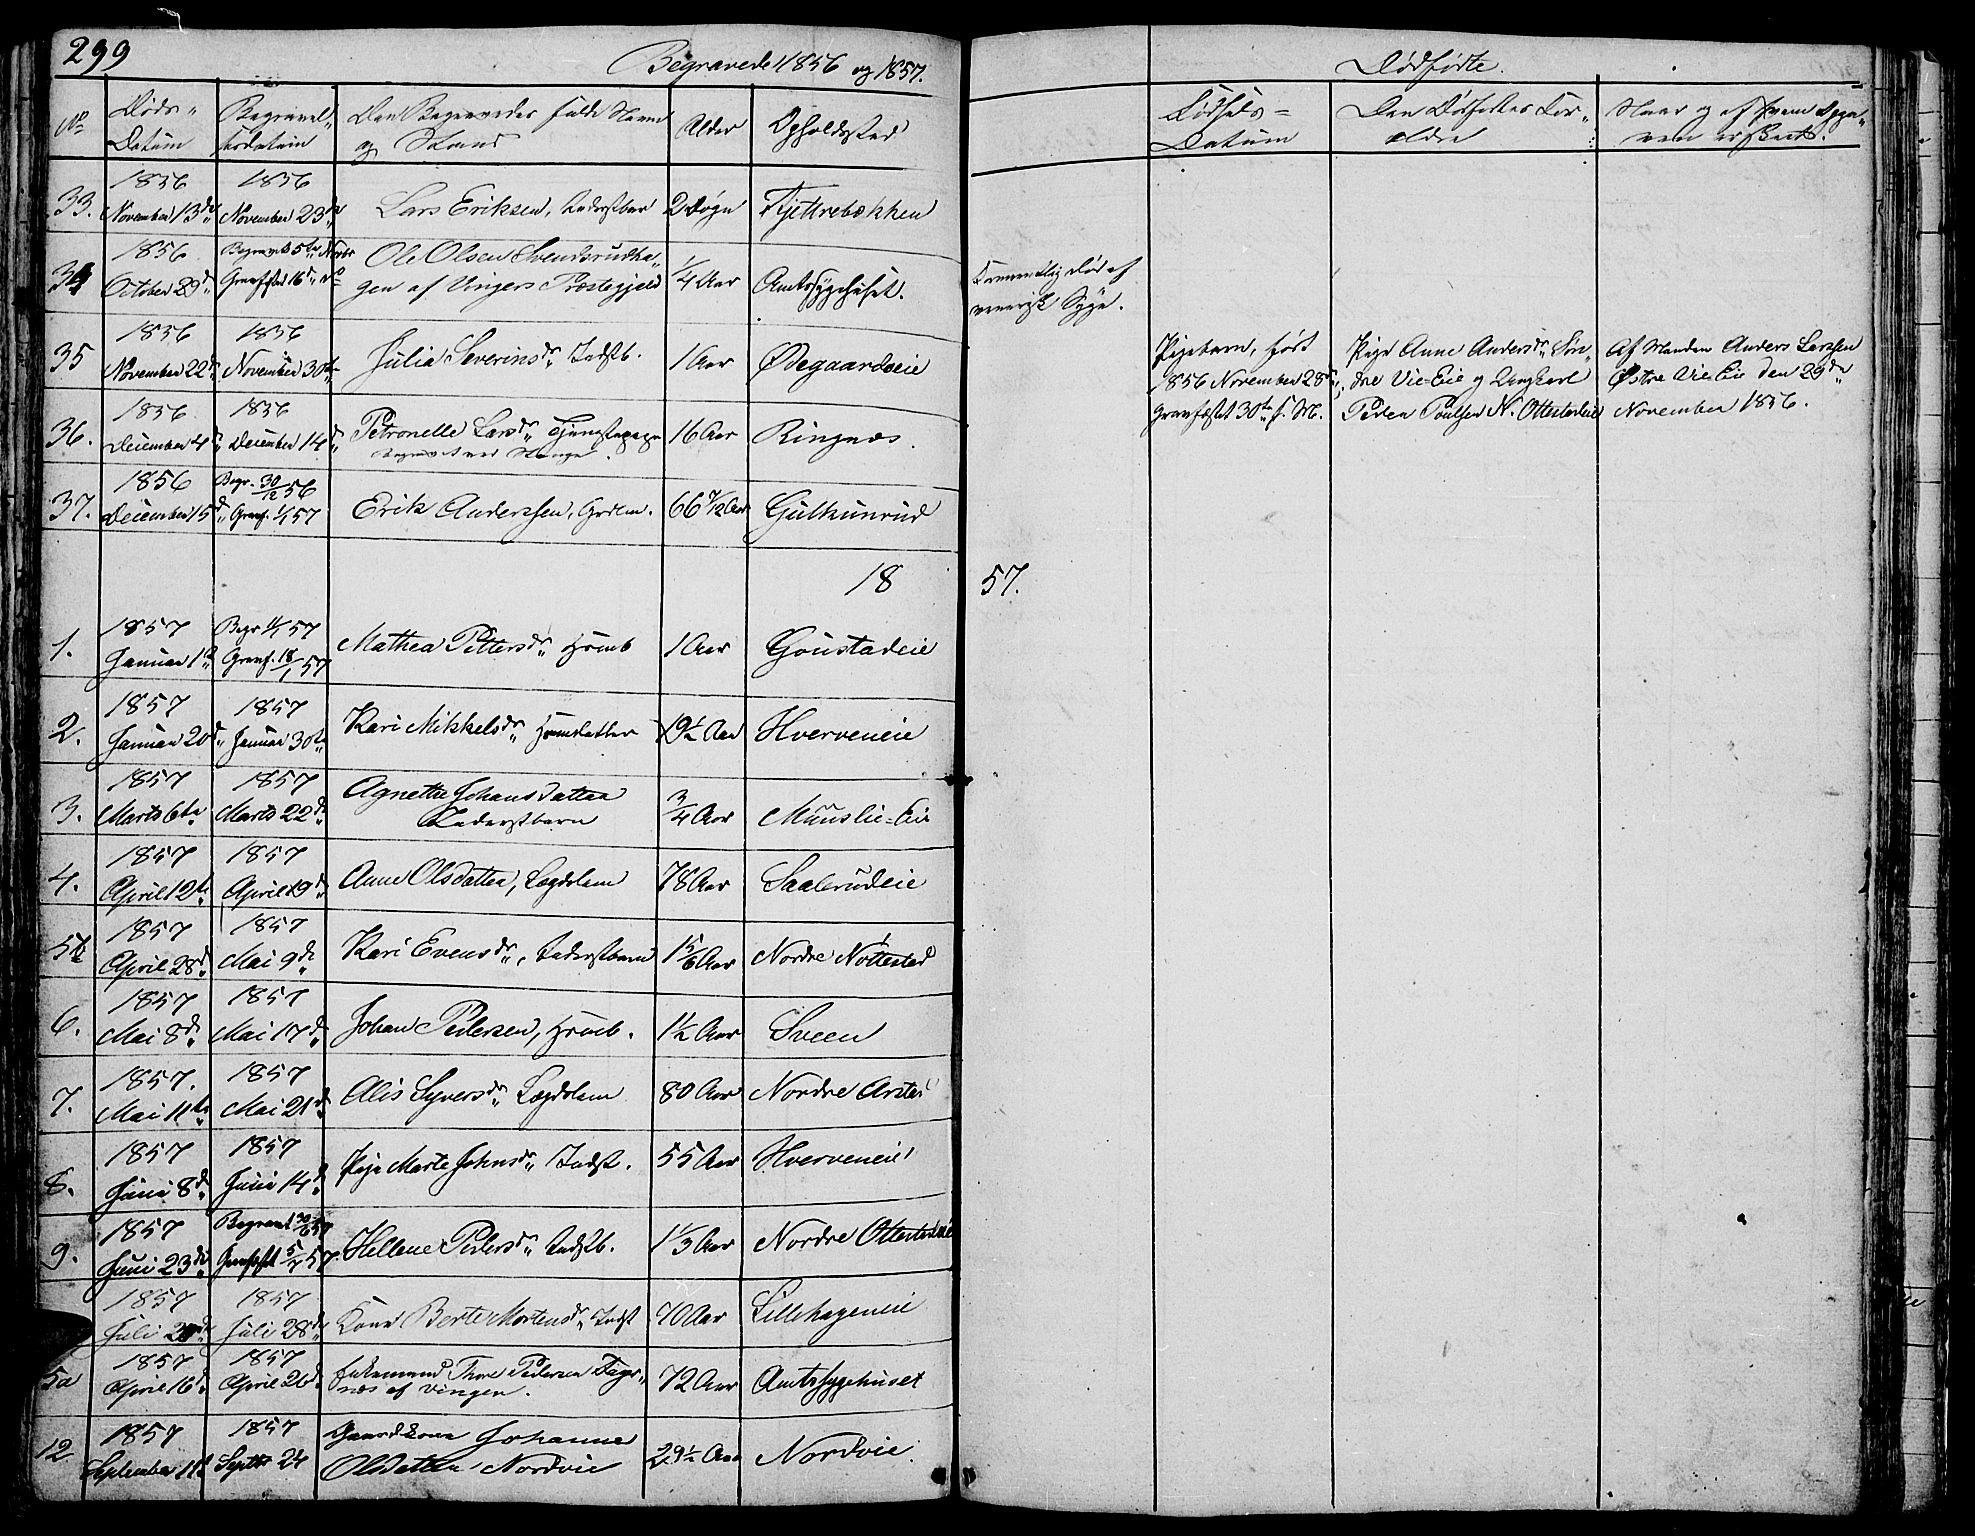 299
Begravede 1856 og 1857.
No
Døds-
Datum
Begravel-
sesdatum
Den Begravedes fulde Navn
og Stand
Alder
Opholdssted
33.
1856
November 13de
1856
November 23de
Lars Eriksen, Inderstbar
2 Døgn
Fjettrebækken
34
1856
October 29de
Begravet 5te Novbr
Gravfæstet 16de do
Ole Olsen Svendsrudha-
gen af Vingers Præstegjeld
1/4 Aar
Amtssygehuset.
35
1856
November 22de
1856
November 30te
Julia Severinsdr. Indstb.
1 Aar
Ødegaardseie
36.
1856
December 4de
1856
December 14de
Petronelle Larsdr. Tjenestepige
Begravet ved Stange.
16 Aar
Ringnæs.
37.
1856
December 15de
Begr. 30/12 56
Gravf. 1/1 57
Erik Anderssen, Grdm.
66 7/12 Aar
Gulhunrud
18
1.
1857
Januar 1te
Begr 11/1 57
Gravf. 18/1 57
Mathea Pettersdr. Husmb
1 Aar
Goustadeie
2.
1857
Januar 20de
1857
Januar 30te
Kari Mikkelsdr. Husmdatter
19½ Aar
Hverveneie
3.
1857
Marts 6te
1857
Marts 22de
Agnethe Johansdatter
Inderstbarn
3/4 Aar
Muuslie-Eie
4.
1857
April 12te
1857
April 19de
Anne Olsdatter, Lægdslem
78 Aar
Saalerudeie
5b
1857
April 28de
1857
Mai 9de
Kari Evensdr., Inderstbarn
1 5/6 Aar
Nordre Nøttestad
6.
1857
Mai 8de
1857
Mai 17de
Johan Pedersen, Husmb.
1½ Aar
Sveen
7.
1857.
Mai 11te
1857
Mai 21de
Alis Syversdr. Lægdslem
80 Aar
Nordre Arstad
8.
1857
Juni 8de
1857
Juni 14de
Pige Marte Johnsdr. Indst.
55 Aar
Hverveneie
9.
1857
Juni 23de
Begravet 30/6 57
Gravfæstet 5/7 57.
Hellene Pedersdr. Indstb.
1 1/3 Aar
Nordre Ottestadeie
1857
Juli 20de
1857
Juli 28de
Kone Berte Mortensdr. Indst
70 Aar
Lillehageneie
5a
1857
April 16de
1857
April 26de
Enkemand Thore Pedersen Fager-
næs af Vinger.
72 Aar
Amtssygehuset
12
1857
September 11te
1857
Septbr 24
Gaardkone Johanne
Olsdatter Nordvie
29½ Aar
Nordvie.
Dødfødte.
Fødsels-
Datum
Den Dødfødtes For-
ældre
Naar og af hvem Opga-
ven er skeet.
død af
venerisk Syge.
Pigebarn, født
1856 November 28de,
gravfæstet 30te s. M.
Pige Anne Andersdr. Søn-
dre Vie-Eie og Ungkarl
Peder Poulsen N. Ottestadeie
Af Manden Anders Larssen
Østre Vie Eie den 29de
November 1856.
57.